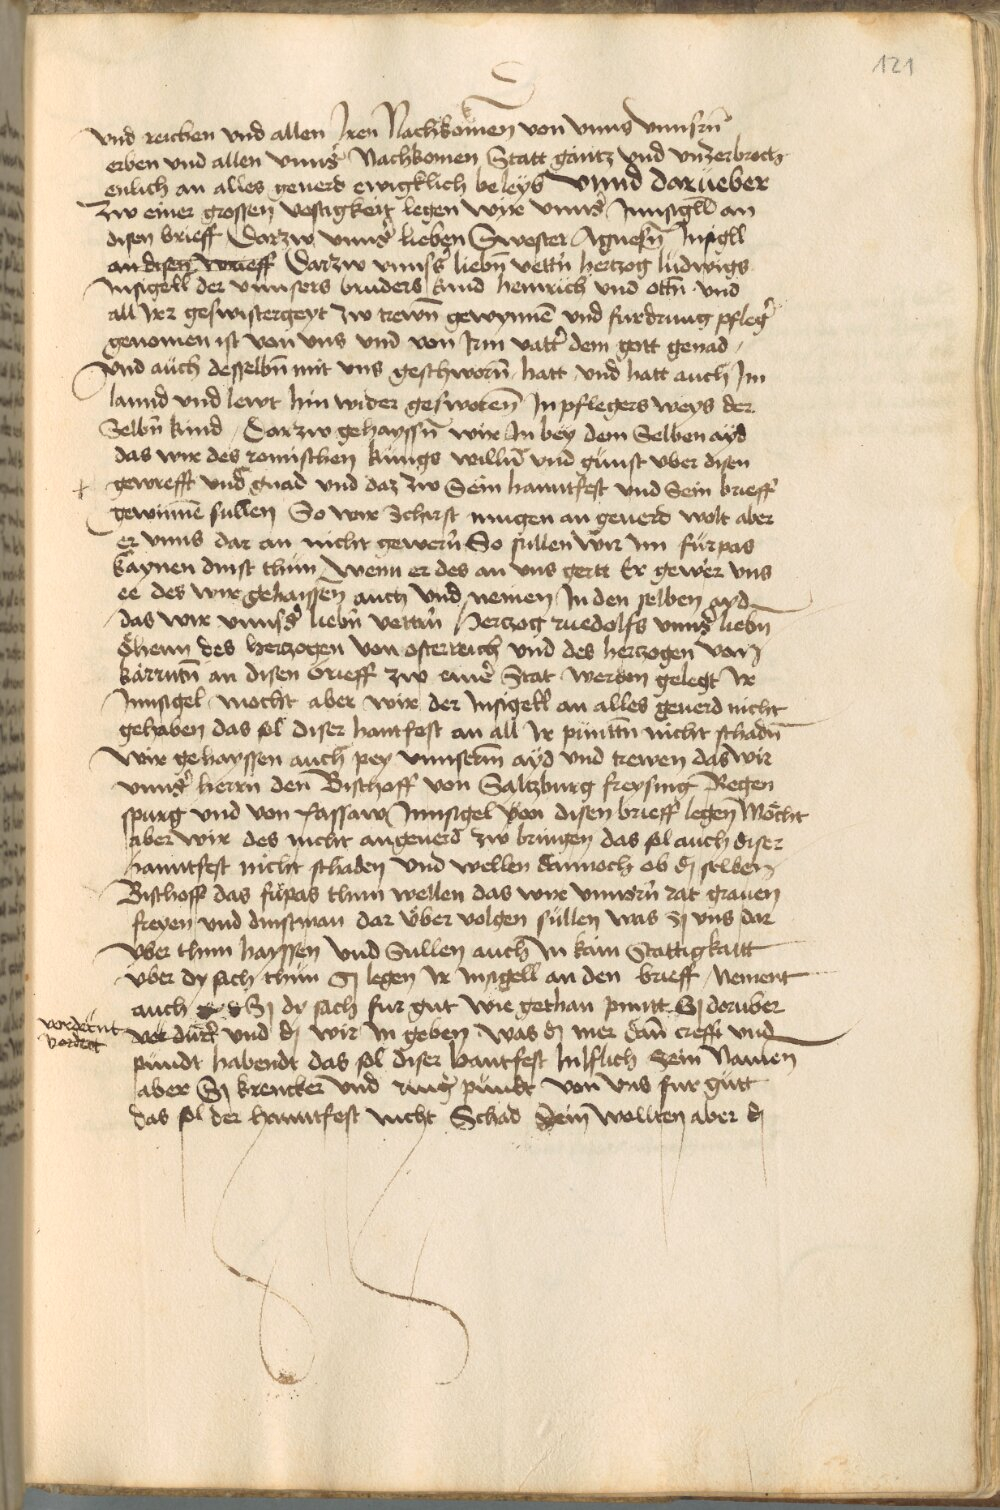 121
vnd reichen vnd allen Iren Nachkomen von vnns vnnsrn
erben vnd allen vnns' Nachkomen Statt gantz vnd vnzerbroch
enlich an alles geuerd ewigklich beleyb Vnnd darüeber
zw einer grossen vestigkeit legen wir vnns' Innsigll an
disen brieff Darzw vnns' lieben Swester Agnesn Insigll
an disen brieff Darzw vnnss liebn vettn hertzog ludwigs
Insigell der vnnsers bruders kind heinrich vnd ottn vnd
all Irr geswistergeyt zw trewn gewynnen vnd furdrung pfleg'
genomen ist von vns vnd von Irm vatt' dem gott genad
Vnd auch desselbn mit vns geschworn hatt vnd hatt auch Im
lannd vnd lewt hin wider gesworen In pflegers weys der
Selbn kind Darzw gehayssn wir In bey dem Selben ayd
das wir des romischen kunigs willn vnd gunst vber disen
gewrefft vnd gnad vnd daz zw Sein hanntfest vnd Sein brieff
gewinnen sullen So wir Schirst mugen an geuerd wolt aber
er vnns dar an nicht gewern So sullen wir im fürpas
kaynen dinst thun Wenn er des an vns gert Er gewer vns
ee des wir gehayssen auch Vnd nemen In den selben ayd
das wir vnnss' liebn vettrn Hertzog ruedolfs vnns' liebn
Öheim des hertzogen von osterreich vnd des hertzogen von
kärnntn an disen brieff zw eine' Stat werden gelegt Ir
Innsigel mocht aber wir der Insigell an alles geuerd nicht
gehaben das sol diser hantfest an all Ir punttn nicht schadn
Wir gehayssen auch pey vnnserm ayd vnd trewen das wir
vnns' herrn den Bischoff von Saltzburg freysing Regen
spurg vnd von Passaw Innsigel von disen brieff legen Möcht
aber wir des nicht angeuerd zw bringen das sol auch diser
hanntfest nicht schaden Vnd wellen dannoch ob dj selben
Bischoff das fürpas thun wellen das wir vnnsrn rat grauen
freyen vnd dinstman dar über volgen süllen was Sj vns dar
vber thun hayssen Vnd Sullen auch In kain Stattigkaitt
vber dy sach thun Sj legen Ir Insigell an den brieff Nement
auch Sj dy sach fur gut wie gethan puntt Sj doruber
vordernt
vordert
vnd dj wir In geben was dj mer dan crefft vnd
pundt habendt das sol diser hantfest hilflich Sein Namen
aber Sj krencker vnd ring' pundt von vns fur gutt
das sol der hanntfest nicht Schad Sein Wollten aber dj